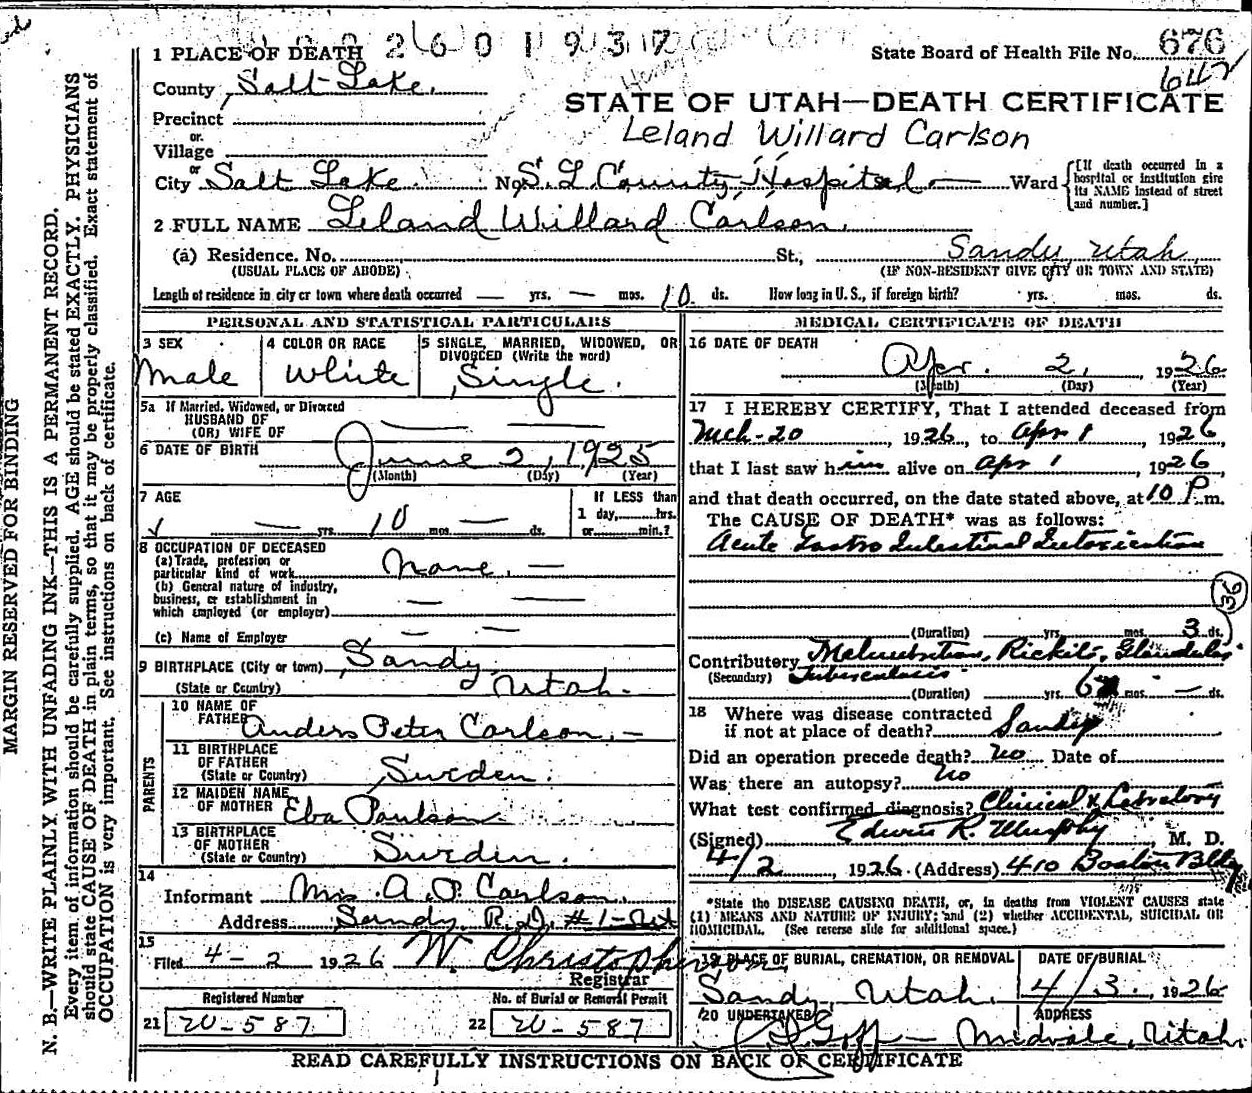 2601937
1 PLACE OF DEATH
State Board of Health File No. 676
642
County Salt Lake.
STATE OF UTAH—DEATH CERTIFICATE
Precinct
Leland Willard Carlson
or
Village
or
City Salt Lake. No. S. L. County Hospital — Ward
[If death occurred in a hospital or institution give its NAME instead of street and number.]
2 FULL NAME Leland Willard Carlson.
(a) Residence. No. St., Sandy, Utah.
(USUAL PLACE OF ABODE) (IF NON-RESIDENT GIVE CITY OR TOWN AND STATE)
Length of residence in city or town where death occurred — yrs. — mos. 10 ds. How long in U. S., if foreign birth? yrs. mos. ds.
PERSONAL AND STATISTICAL PARTICULARS
3 SEX
Male
4 COLOR OR RACE
White
5 SINGLE, MARRIED, WIDOWED, OR DIVORCED (Write the word)
Single.
5a If Married, Widowed, or Divorced
HUSBAND OF
(OR) WIFE OF — —
6 DATE OF BIRTH June 2, 1925
(Month) (Day) (Year)
7 AGE
— yrs. 10 mos — ds.
If LESS than
1 day, hrs.
or min.?
8 OCCUPATION OF DECEASED
(a) Trade, profession or
particular kind of work None. —
(b) General nature of industry,
business, or establishment in
which employed (or employer) — —
(c) Name of Employer — —
9 BIRTHPLACE (City or town) Sandy
(State or Country) Utah.
PARENTS
10 NAME OF
FATHER Anders Peter Carlson. —
11 BIRTHPLACE
OF FATHER
(State or Country) Sweden.
12 MAIDEN NAME
OF MOTHER Eba Paulson
13 BIRTHPLACE
OF MOTHER
(State or Country) Sweden.
14
Informant Mrs. A. P. Carlson.
Address Sandy R. D. #1-Ut
15
Filed 4-2 1926 W. Christopherson
Registrar
Registered Number
21 W-587
No. of Burial or Removal Permit
22 W-587
MEDICAL CERTIFICATE OF DEATH
16 DATE OF DEATH
Apr. 2, 1926
(Month) (Day) (Year)
17 I HEREBY CERTIFY, That I attended deceased from
Mch-20, 1926, to Apr 1, 1926
that I last saw him alive on Apr 1, 1926
and that death occurred, on the date stated above, at 10 P.m.
The CAUSE OF DEATH* was as follows:
Acute Gastro Intestinal Intoxication
36
(Duration) yrs. mos. 3 ds.
Contributory Malnutrition, Rickits, Glandular
(Secondary) Tuberculosis
(Duration) yrs. 6 mos — ds.
18 Where was disease contracted
if not at place of death? Sandy
Did an operation precede death? No Date of
Was there an autopsy? No
What test confirmed diagnosis? Clinical & Labratory
(Signed) Edwin R. Murphy M. D.
4/2, 1926. (Address) 410 Boston Bldg
*State the DISEASE CAUSING DEATH, or, in deaths from VIOLENT CAUSES state
(1) MEANS AND NATURE OF INJURY; and (2) whether ACCIDENTAL, SUICIDAL OR
HOMICIDAL. (See reverse side for additional space.)
19 PLACE OF BURIAL, CREMATION, OR REMOVAL
Sandy, Utah.
DATE OF BURIAL
4/3., 1926
20 UNDERTAKER
Goff —
ADDRESS
Midvale, Utah.
READ CAREFULLY INSTRUCTIONS ON BACK OF CERTIFICATE
MARGIN RESERVED FOR BINDING
N. B.—WRITE PLAINLY, WITH UNFADING INK—THIS IS A PERMANENT RECORD.
Every item of information should be carefully supplied. AGE should be stated EXACTLY. PHYSICIANS
should state CAUSE OF DEATH in plain terms, so that it may be properly classified. Exact statement of
OCCUPATION is very important. See instructions on back of certificate.